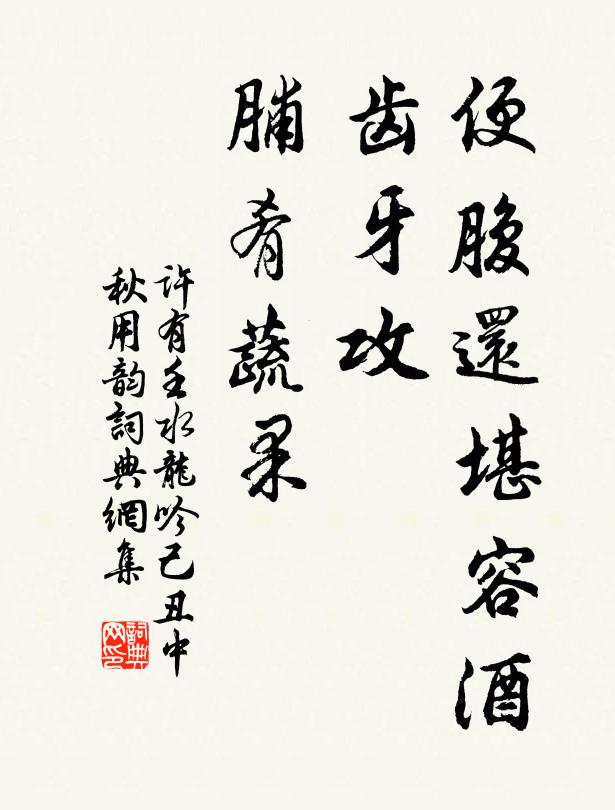 便腹還堪容酒
齿牙攻
脯肴蔬果
许有壬水龍吟己丑中
秋用韵詞典網集
詞典网印